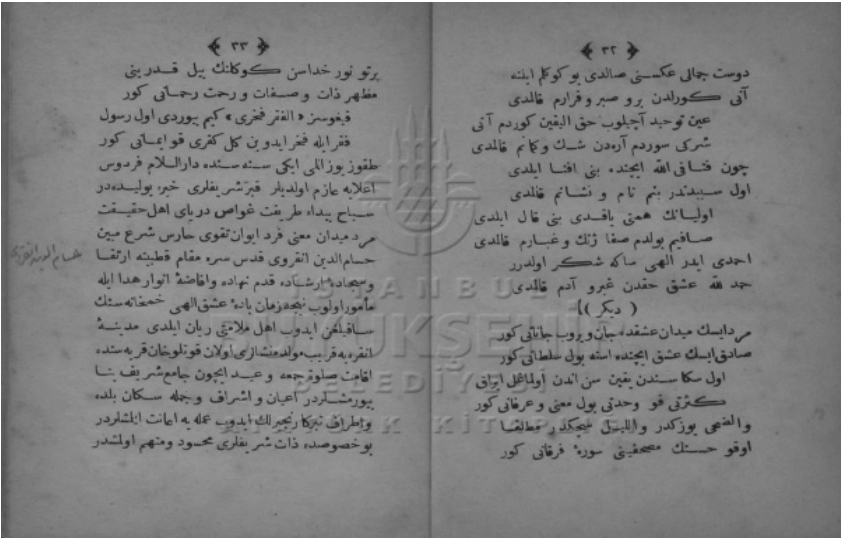 ﴾ ٣٢ ﴿
دوست جمالى عكسنى صالدى بو كوكلم ايلنه
آنى كورلدن برو صبر و قرارم قالمدى
عين توحيد آچيلوب حق اليقين كوردم آنى
شركى سوردم آره‌دن شك و كمانم قالمدى
چون فنا فى الله ايچنده بنى افنا ايلدى
اول سببدندر بنم نام و نشانم قالمدى
اوليانك همتى ياقدى بنى قال ايلدى
صافيم بولدم صفا ژنك و غبارم قالمدى
احمدى ايدر الهى ساكه شكر اولدرر
حمد لله عشق حقدن غيرو آدم قالمدى
( ديكر )
مرد ايسك ميدان عشقده جان ويروب جانانى كور
صادق ايسك عشق ايچنده استه بول سلطانى كور
اول سكا سندن يقين سن اندن اولماغل ايراق
كثرتى قو وحدتى بول معنى و عرفانى كور
والضحى يوزكدر والليل صچكدر مطلقا
اوقو حسنك مصحفينى سورهٔ فرقانى كور
﴾ ٣٣ ﴿
پرتو نور خداسن كوكلنك بيل قدرينى
مظهر ذات و صفات و رحمت رحمانى كور
قيغوسز «الفقر فخرى» كيم بيوردى اول رسول
فقر ايله فخر ايدوبن كل كفرى قو ايمانى كور
طقوز يوز اللى ايكى سنه سنده دار السلام فردوس
اعلايه عازم اولديلر قبر شريفلرى خيره بوليده‌در
سباح بيداء طريقت غواص درياى اهل حقيقت
مرد ميدان معنى فرد ايوان تقوى حارس شرع مبين
حسام الدين انقروى قدس سره مقام قطبيته ارتقا
وسجادهٔ ارشاده قدم نهاده وافاضهٔ انوار هدا ايله
مأمور اولوب نيجه زمان بادهٔ عشق الهى خمخانه سنك
ساقيلغن ايدوب اهل ملامتى ريان ايلدى مدينهٔ
انقره‌يه قريب مولد و منشالرى اولان قوتلوخان قريه سنده
اقامت صلوة جمعه و عيد ايچون جامع شريف بنا
بيورمشلردر اعيان و اشراف و جمله سكان بلده
و اطراف تبركا رنجبرلك ايدوب عمله يه اعانت ايلشلردر
بو خصوصده ذات شريفلرى محسود و متهم اولمشدر
حسام الدين انقروى
İSTANBUL
BÜYÜKŞEHİR
BELEDİYESİ
ATATÜRK KİTAPLIĞI